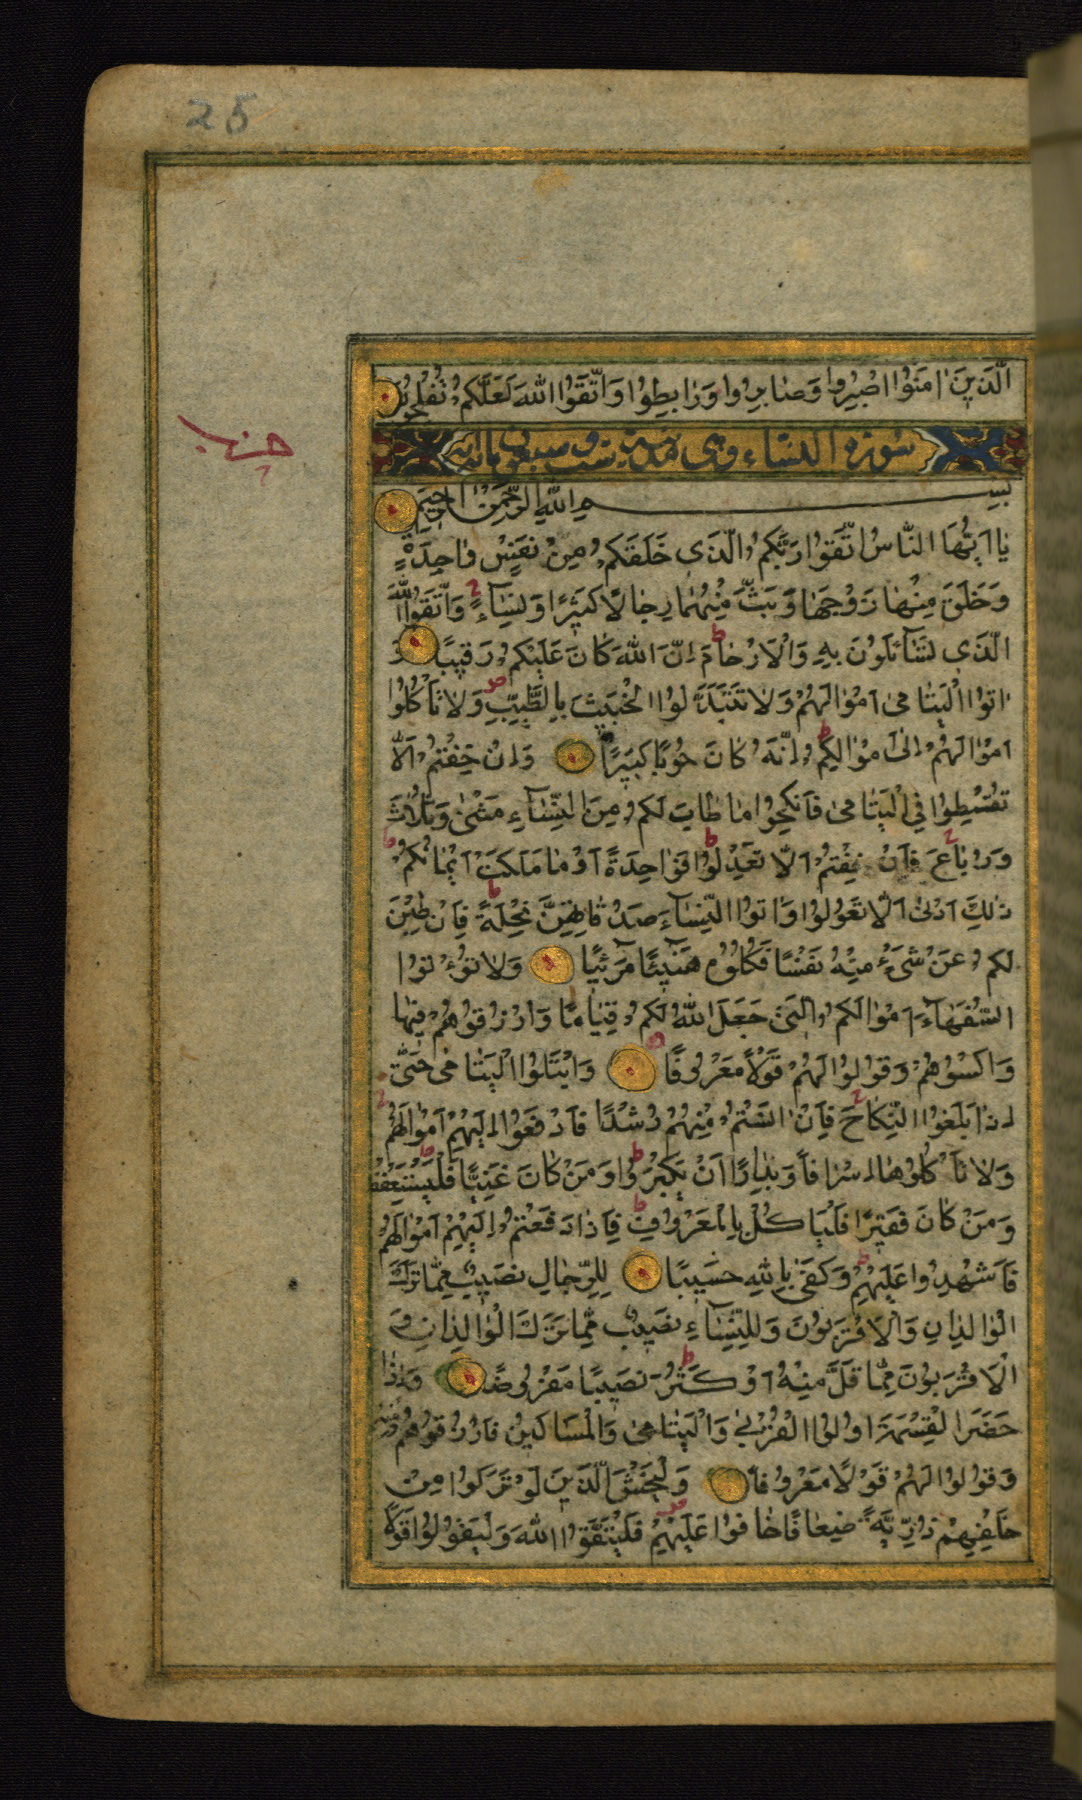 25
الَّذينَ اٰمَنُوا اصْبِرُوا وَصٰابِرُوا وَرٰابِطُوا وَاتَّقُوا اللهَ لَعَلَّكُمْ تُفْلِحُونَ
سورة النساء وهى مائة وست وسبعون اية
حزب
بِسْمِ اللهِ الرَّحْمٰنِ الرَّحيمِ
يٰا اَيُّهَا النّٰاسُ اتَّقُوا رَبَّكُمُ الَّذى خَلَقَكُمْ مِنْ نَفْسٍ وٰاحِدَةٍ
وَخَلَقَ مِنْهٰا زَوْجَهٰا وَبَثَّ مِنْهُمٰا رِجٰالًا كَثيرًا وَنِسٰآءً وَاتَّقُوا اللهَ
الَّذى تَسٰآئَلُونَ بِهِ وَالْاَرْحٰامَ اِنَّ اللهَ كٰانَ عَلَيْكُمْ رَقيبًا وَ
اٰتُوا الْيَتٰامىٰ اَمْوٰالَهُمْ وَلٰا تَتَبَدَّلُوا الْخَبيثَ بِالطَّيِّبِ وَلٰا تَأْكُلُوا
اَمْوٰالَهُمْ اِلىٰ اَمْوٰالِكُمْ اِنَّهُ كٰانَ حُوبًا كَبيرًا وَاِنْ خِفْتُمْ اَلّٰا
تُقْسِطُوا فِي الْيَتٰامىٰ فَانْكِحُوا مٰا طٰابَ لَكُمْ مِنَ النِّسٰآءِ مَثْنىٰ وَثُلٰاثَ
وَرُبٰاعَ فَاِنْ خِفْتُمْ اَلّٰا تَعْدِلُوا فَوٰاحِدَةً اَوْ مٰا مَلَكَتْ اَيْمٰانُكُمْ
ذٰلِكَ اَدْنىٰ اَلّٰا تَعُولُوا وَاٰتُوا النِّسٰآءَ صَدُقٰاتِهِنَّ نِحْلَةً فَاِنْ طِبْنَ
لَكُمْ عَنْ شَيْءٍ مِنْهُ نَفْسًا فَكُلُوهُ هَنيئًا مَريئًا وَلٰا تُؤْتُوا
السُّفَهٰآءَ اَمْوٰالَكُمُ الَّتى جَعَلَ اللهُ لَكُمْ قِيٰامًا وَارْزُقُوهُمْ فيهٰا
وَاكْسُوهُمْ وَقُولُوا لَهُمْ قَوْلًا مَعْرُوفًا وَابْتَلُوا الْيَتٰامىٰ حَتّىٰ
اِذٰا بَلَغُوا النِّكٰاحَ فَاِنْ اٰنَسْتُمْ مِنْهُمْ رُشْدًا فَادْفَعُوا اِلَيْهِمْ اَمْوٰالَهُمْ
وَلٰا تَأْكُلُوهٰا اِسْرٰافًا وَبِدٰارًا اَنْ يَكْبَرُوا وَمَنْ كٰانَ غَنِيًّا فَلْيَسْتَعْفِفْ
وَمَنْ كٰانَ فَقيرًا فَلْيَأْكُلْ بِالْمَعْرُوفِ فَاِذٰا دَفَعْتُمْ اِلَيْهِمْ اَمْوٰالَهُمْ
فَاَشْهِدُوا عَلَيْهِمْ وَكَفىٰ بِاللهِ حَسيبًا لِلرِّجٰالِ نَصيبٌ مِمّٰا تَرَكَ
الْوٰالِدٰانِ وَالْاَقْرَبُونَ وَلِلنِّسٰآءِ نَصيبٌ مِمّٰا تَرَكَ الْوٰالِدٰانِ وَ
الْاَقْرَبُونَ مِمّٰا قَلَّ مِنْهُ اَوْ كَثُرَ نَصيبًا مَفْرُوضًا وَاِذٰا
حَضَرَ الْقِسْمَةَ اُولُوا الْقُرْبىٰ وَالْيَتٰامىٰ وَالْمَسٰاكينُ فَارْزُقُوهُمْ مِنْهُ
وَقُولُوا لَهُمْ قَوْلًا مَعْرُوفًا وَلْيَخْشَ الَّذينَ لَوْ تَرَكُوا مِنْ
خَلْفِهِمْ ذُرِّيَّةً ضِعٰافًا خٰافُوا عَلَيْهِمْ فَلْيَتَّقُوا اللهَ وَلْيَقُولُوا قَوْلًا